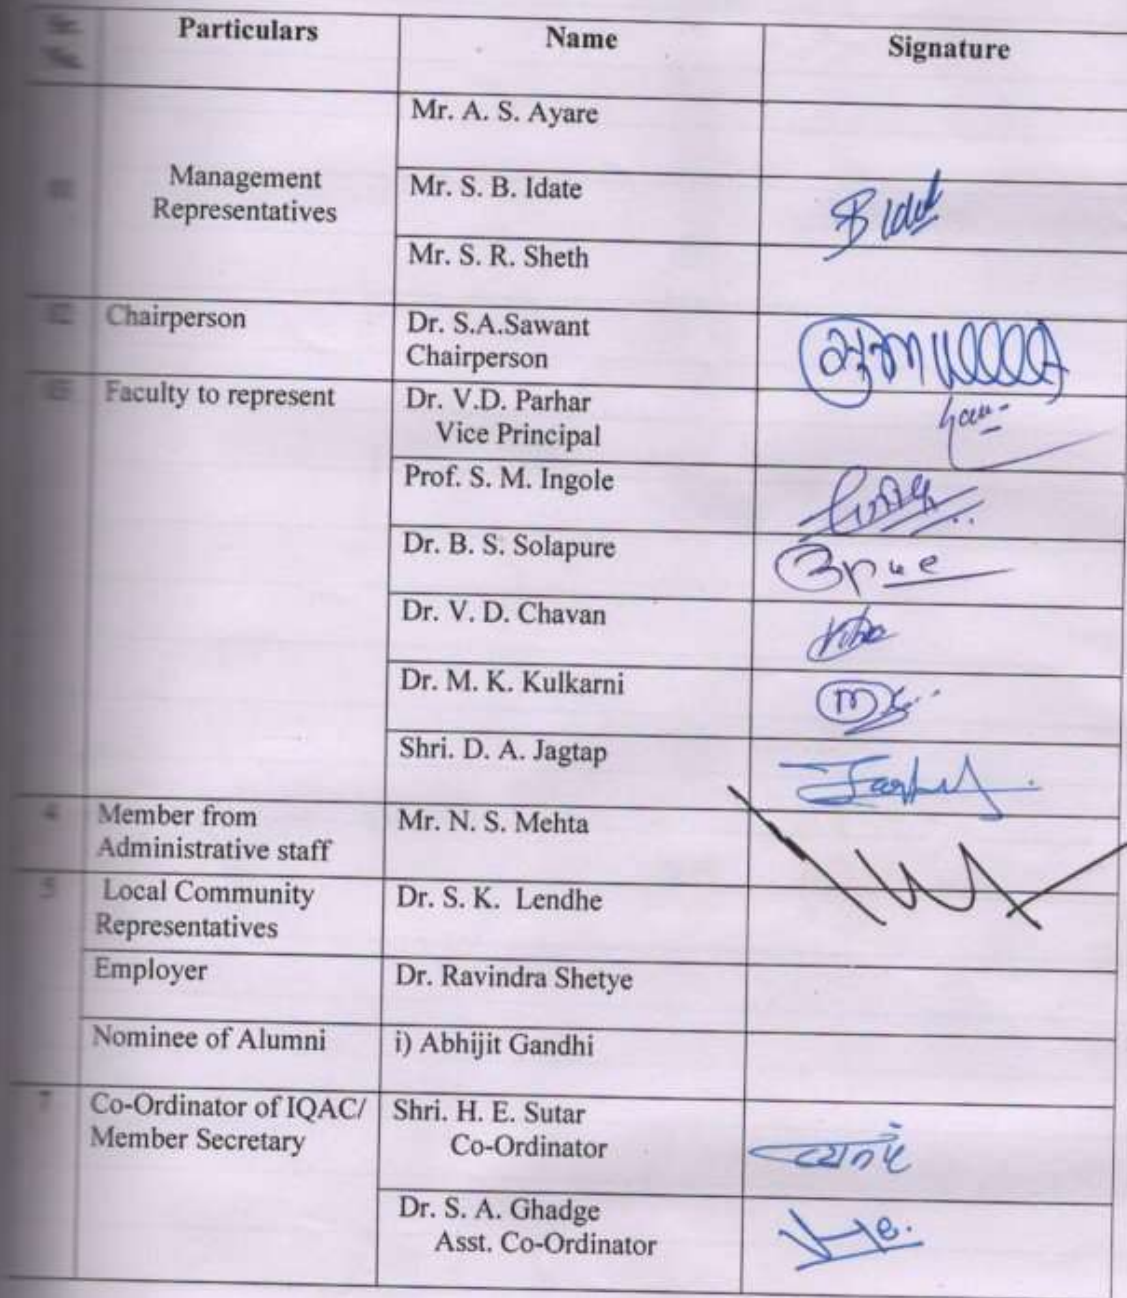 Particulars
Name
Signature
Mr. A. S. Ayare
Management
Representatives
Mr. S. B. Idate
Mr. S. R. Sheth
Chairperson
Dr. S.A.Sawant
Chairperson
Faculty to represent
Dr. V.D. Parhar
Vice Principal
Prof. S. M. Ingole
Dr. B. S. Solapure
Dr. V. D. Chavan
Dr. M. K. Kulkarni
Shri. D. A. Jagtap
4
Member from
Administrative staff
Mr. N. S. Mehta
5
Local Community
Representatives
Dr. S. K. Lendhe
Employer
Dr. Ravindra Shetye
Nominee of Alumni
i) Abhijit Gandhi
7
Co-Ordinator of IQAC/
Member Secretary
Shri. H. E. Sutar
Co-Ordinator
Dr. S. A. Ghadge
Asst. Co-Ordinator